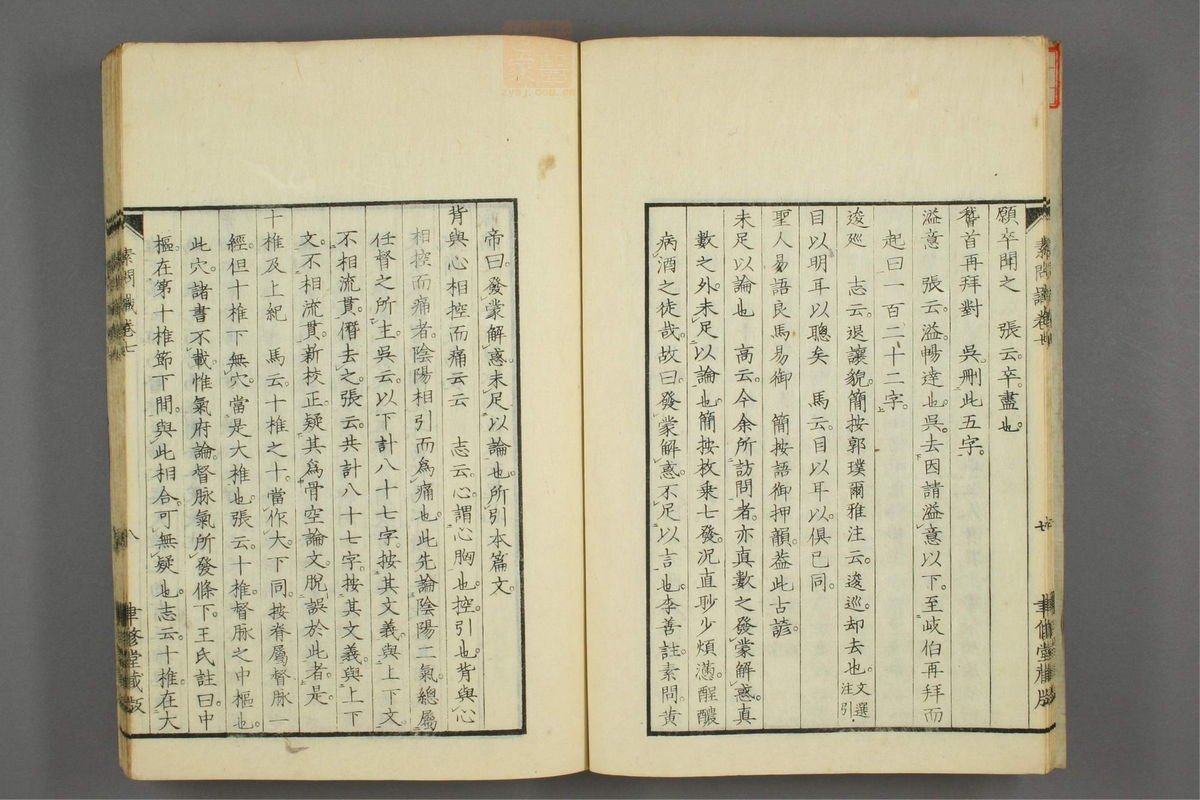 願卒聞之　張云卒盡也。
稽首再拜對　吳刪此五字。
溢意　張云。溢暢達也。吳去因請溢意以下。至岐伯再拜而
起曰一百二十二字。
逡巡　志云。退讓貌。簡按郭璞爾雅注云。逡巡。却去也。文選注引
目以明耳以聰矣　馬云。目以耳以。俱已同。
聖人易語良馬易御　簡按語御押韻。葢此古諺。
未足以論也　高云。今余所訪問者。亦真數之發蒙解惑。真
數之外。未足以論也。簡按枚乗七發。況直眇少煩懣。酲醲
病酒之徒哉。故曰。發蒙解惑。不足以言也。李善註。素問。黃
帝曰。發蒙解惑。未足以論也。所引本篇文。
背與心相控而痛云云　志云。心。謂心胸也。控。引也。背與心
相控而痛者。陰陽相引而爲痛也。此先論陰陽二氣。總屬
任督之所主。吳云。以下計八十七字。按其文義。與上下文
不相流貫。僭去之。張云。共計八十七字。按其文義。與上下
文。不相流貫。新校正。疑其爲骨空論文。脫誤於此者。是。
十椎及上紀　馬云。十椎之十。當作大。下同。按脊屬督脉一
經。但十椎下無穴。當是大椎也。張云。十椎。督脉之中樞也。
此穴。諸書不載。惟氣府論督脉氣所發條下。王氏註曰。中
樞在第十椎節下間。與此相合。可無疑也。志云。十椎在大
素問識卷七
八
聿修堂藏版